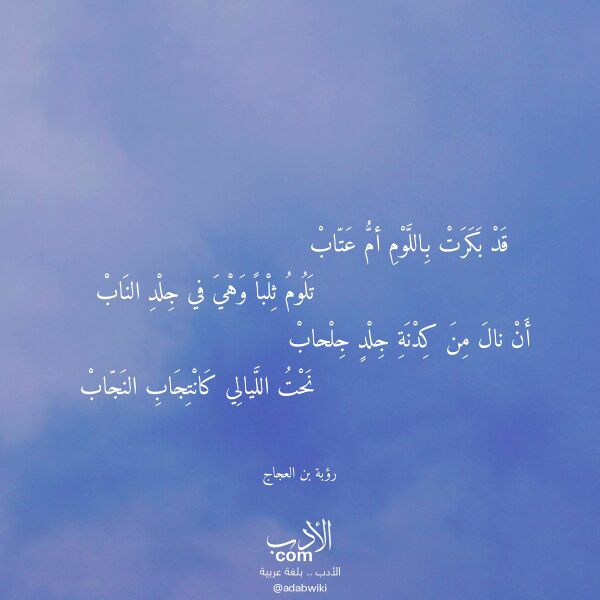 قَدْ بَكَرَتْ بِاللَّوْمِ أمُّ عَتّابْ
تَلُومُ ثِلْباً وَهْيَ في جِلْدِ النَابْ
أَنْ نالَ مِنَ كِدْنَةِ جِلْدٍ جِلْحابْ
نَحْتُ اللَّيالِي كَانْتِجَابِ النَجّابْ
رؤبة بن العجاج
الأدب
com
الأدب .. بلغة عربية
@adabwiki